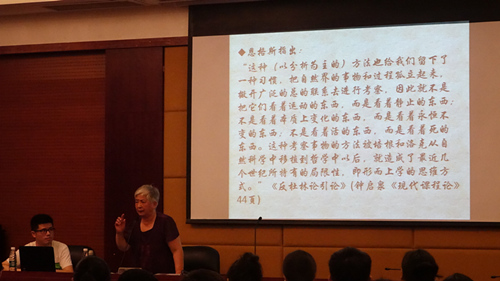 ◆恩格斯指出：
“这种（以分析为主的）方法也给我们留下了
一种习惯，把自然界的事物和过程孤立起来，
撇开广泛的总的联系去进行考察，因此就不是
把它们看着运动的东西，而是看着静止的东西；
不是看着本质上变化的东西，而是看着永恒不
变的东西；不是看着活的东西，而是看着死的
东西。这种考察事物的方法被培根和洛克从自
然科学中移植到哲学中以后，就造成了最近几
个世纪所特有的局限性，即形而上学的思维方
式。”《反杜林论引论》（钟启泉《现代课程论》
44页）